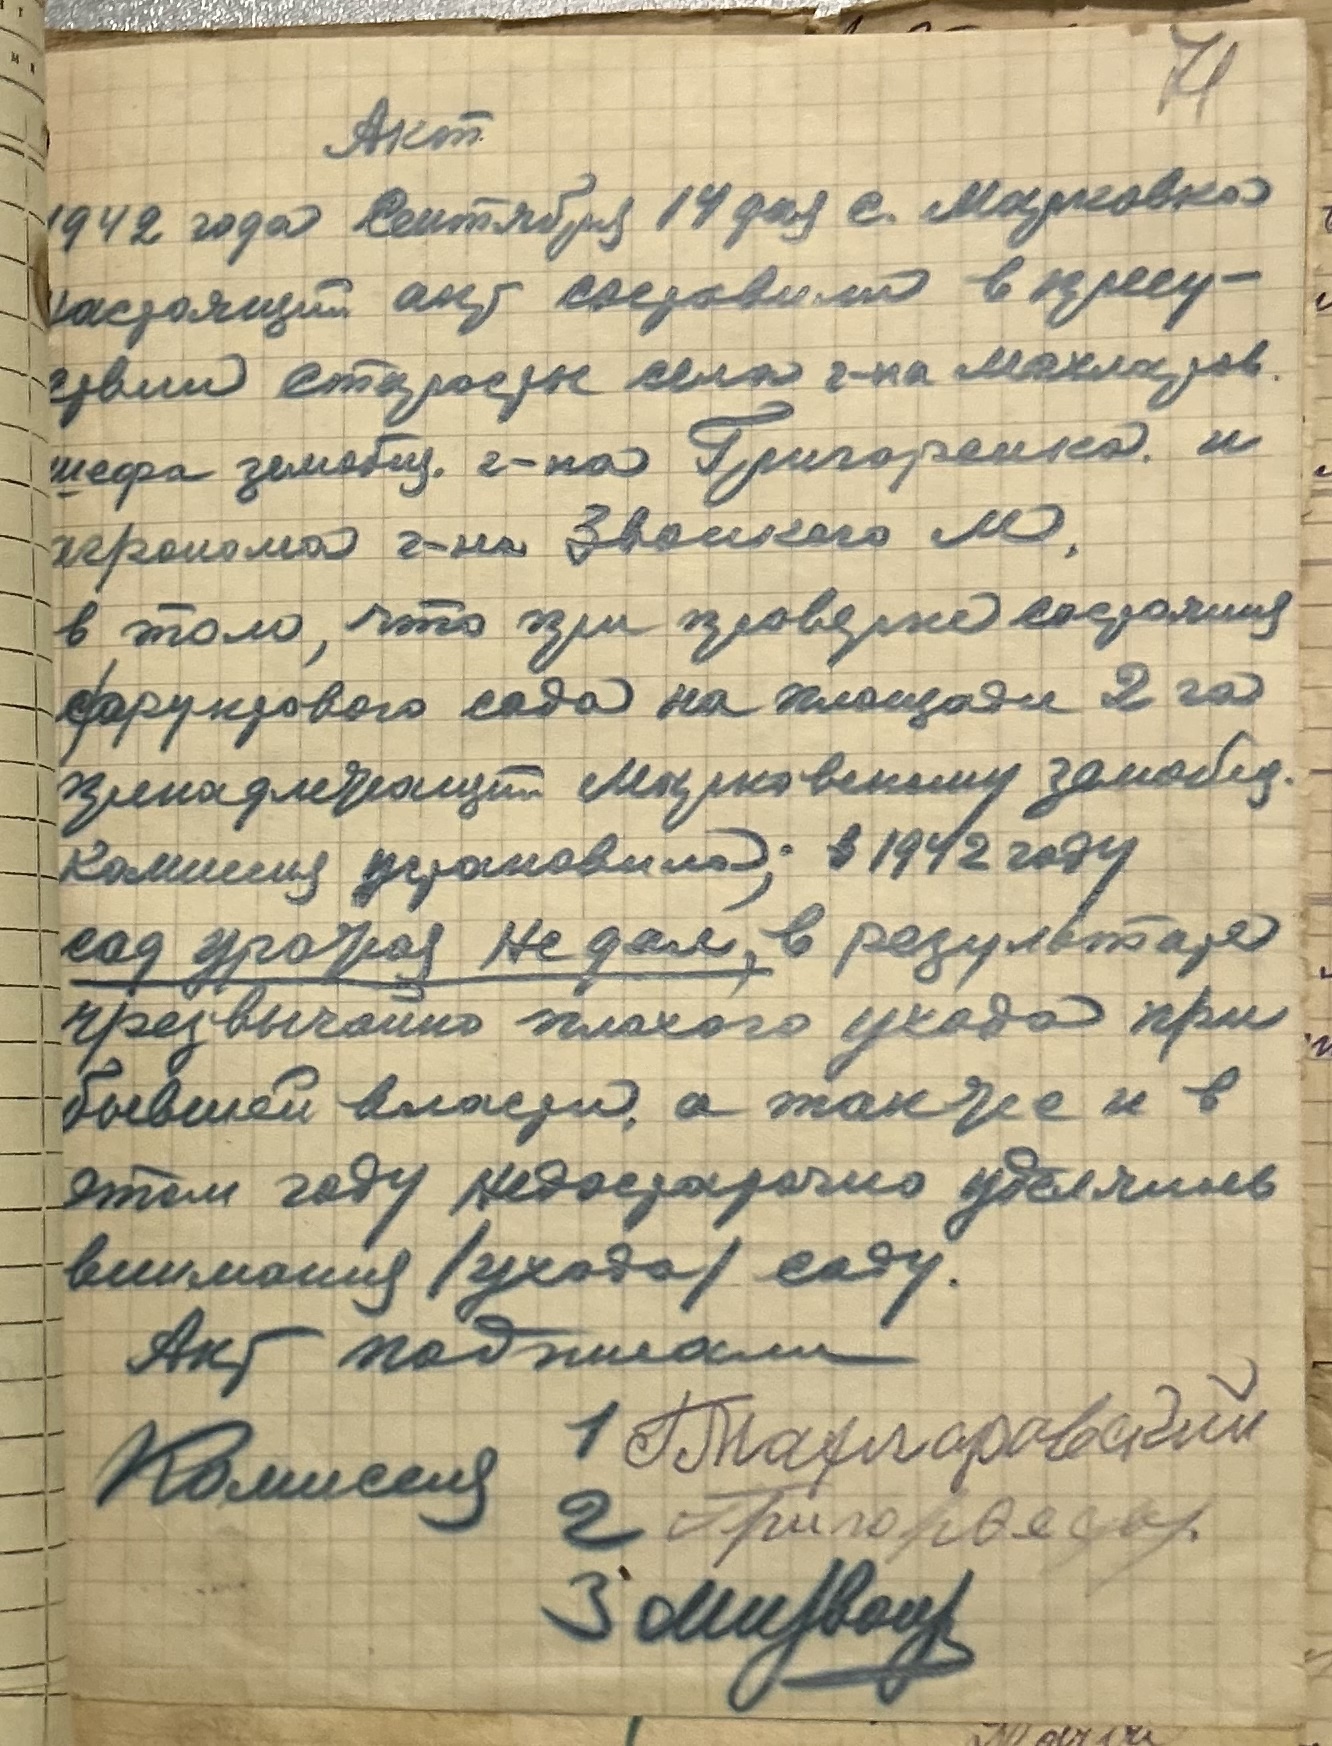 71
Акт
1942 года Сентября 14 дня с. Марковка
настоящий акт составили в прису-
ствии старосты села г-на
шефа земобщ. г-на Григоренка. и
агронома г-на Звонкого М.
в том, что при проверке состояния
фруктового сада на площади 2 га
принадлежащий Марковскому земобщ.
Комиссия установила; в 1942 году
сад урожая не дал, в результате
чрезвычайно плохого ухода при
бывшей власти, а также и в
этом году недостаточно уделялись
внимания /ухода/ саду.
Акт подписали
Комиссия 1
2
3